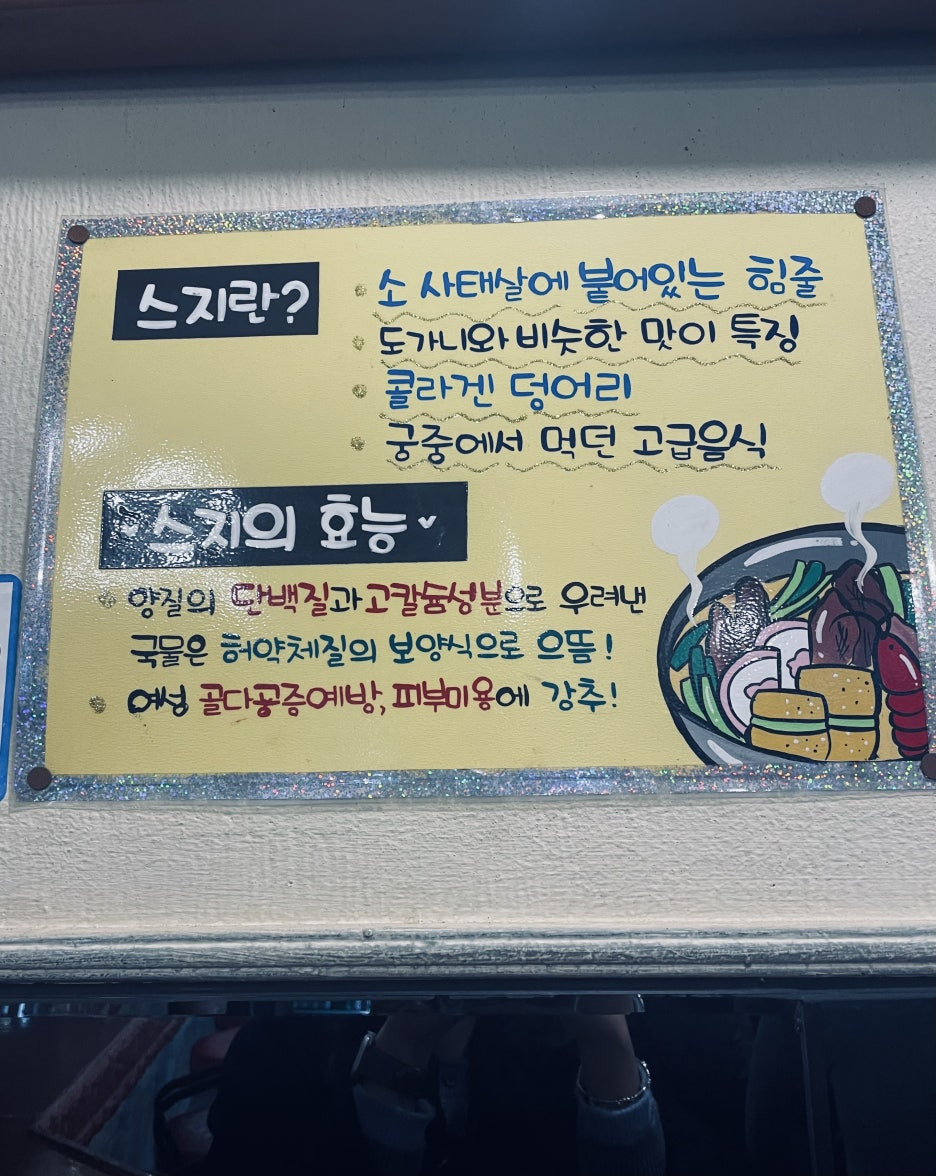 스지란?
소 사태살에 붙어있는 힘줄
도가니와 비슷한 맛이 특징
콜라겐 덩어리
궁중에서 먹던 고급음식
스지의 효능
양질의 단백질과 고칼슘성분으로 우려낸
국물은 허약체질의 보양식으로 으뜸!
여성 골다공증예방, 피부미용에 강추!